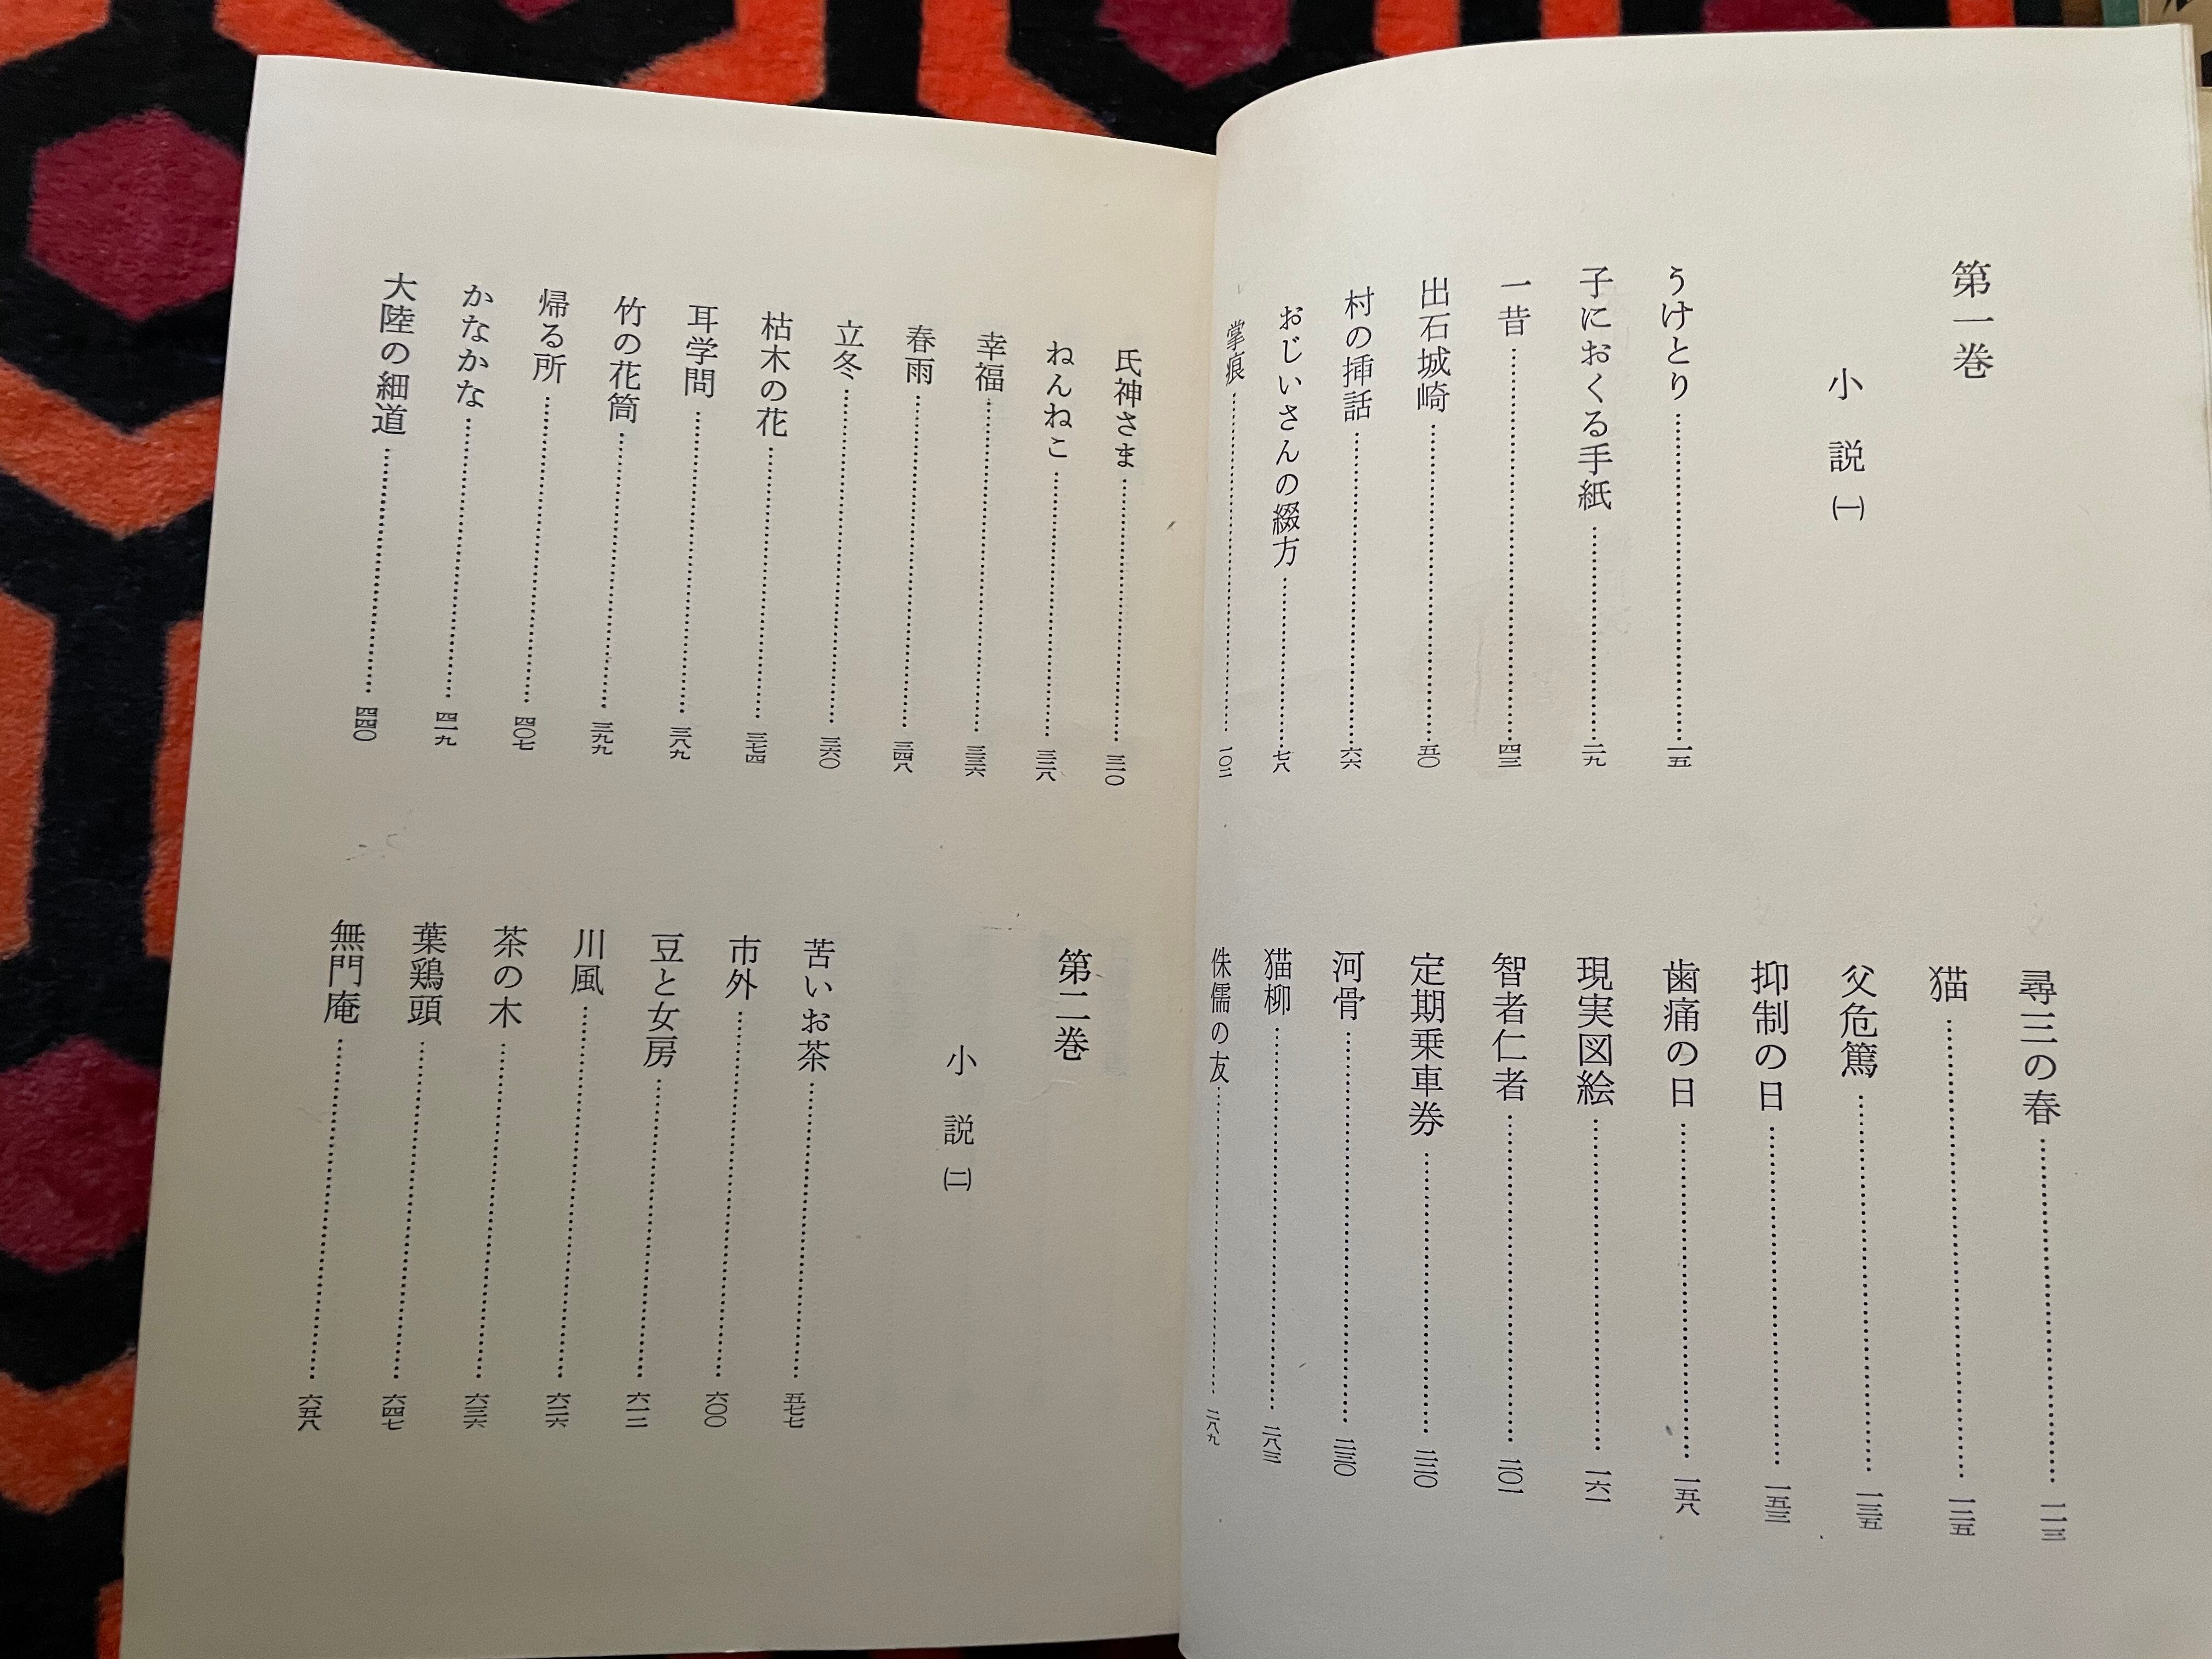 第一巻
小説㈠
うけとり………一五
子におくる手紙………二九
一昔………四三
出石城崎………五〇
村の挿話………六六
おじいさんの綴方………七八
掌痕………一〇二
尋三の春………一一三
猫………一二五
父危篤………一三五
抑制の日………一五三
歯痛の日………一五八
現実図絵………一六一
智者仁者………二〇一
定期乗車券
河骨
猫柳………二八三
侏儒の友………二八九
氏神さま………三一〇
ねんねこ………三二八
幸福………三三六
春雨………三四八
立冬………三六〇
枯木の花………三七四
耳学問………三八九
竹の花筒………三九九
帰る所………四〇七
かなかな………四一九
大陸の細道………四四〇
第二巻
小説㈡
苦いお茶………五七七
市外………六〇〇
豆と女房………六一二
川風………六二六
茶の木………六三六
葉鶏頭………六四七
無門庵………六五八